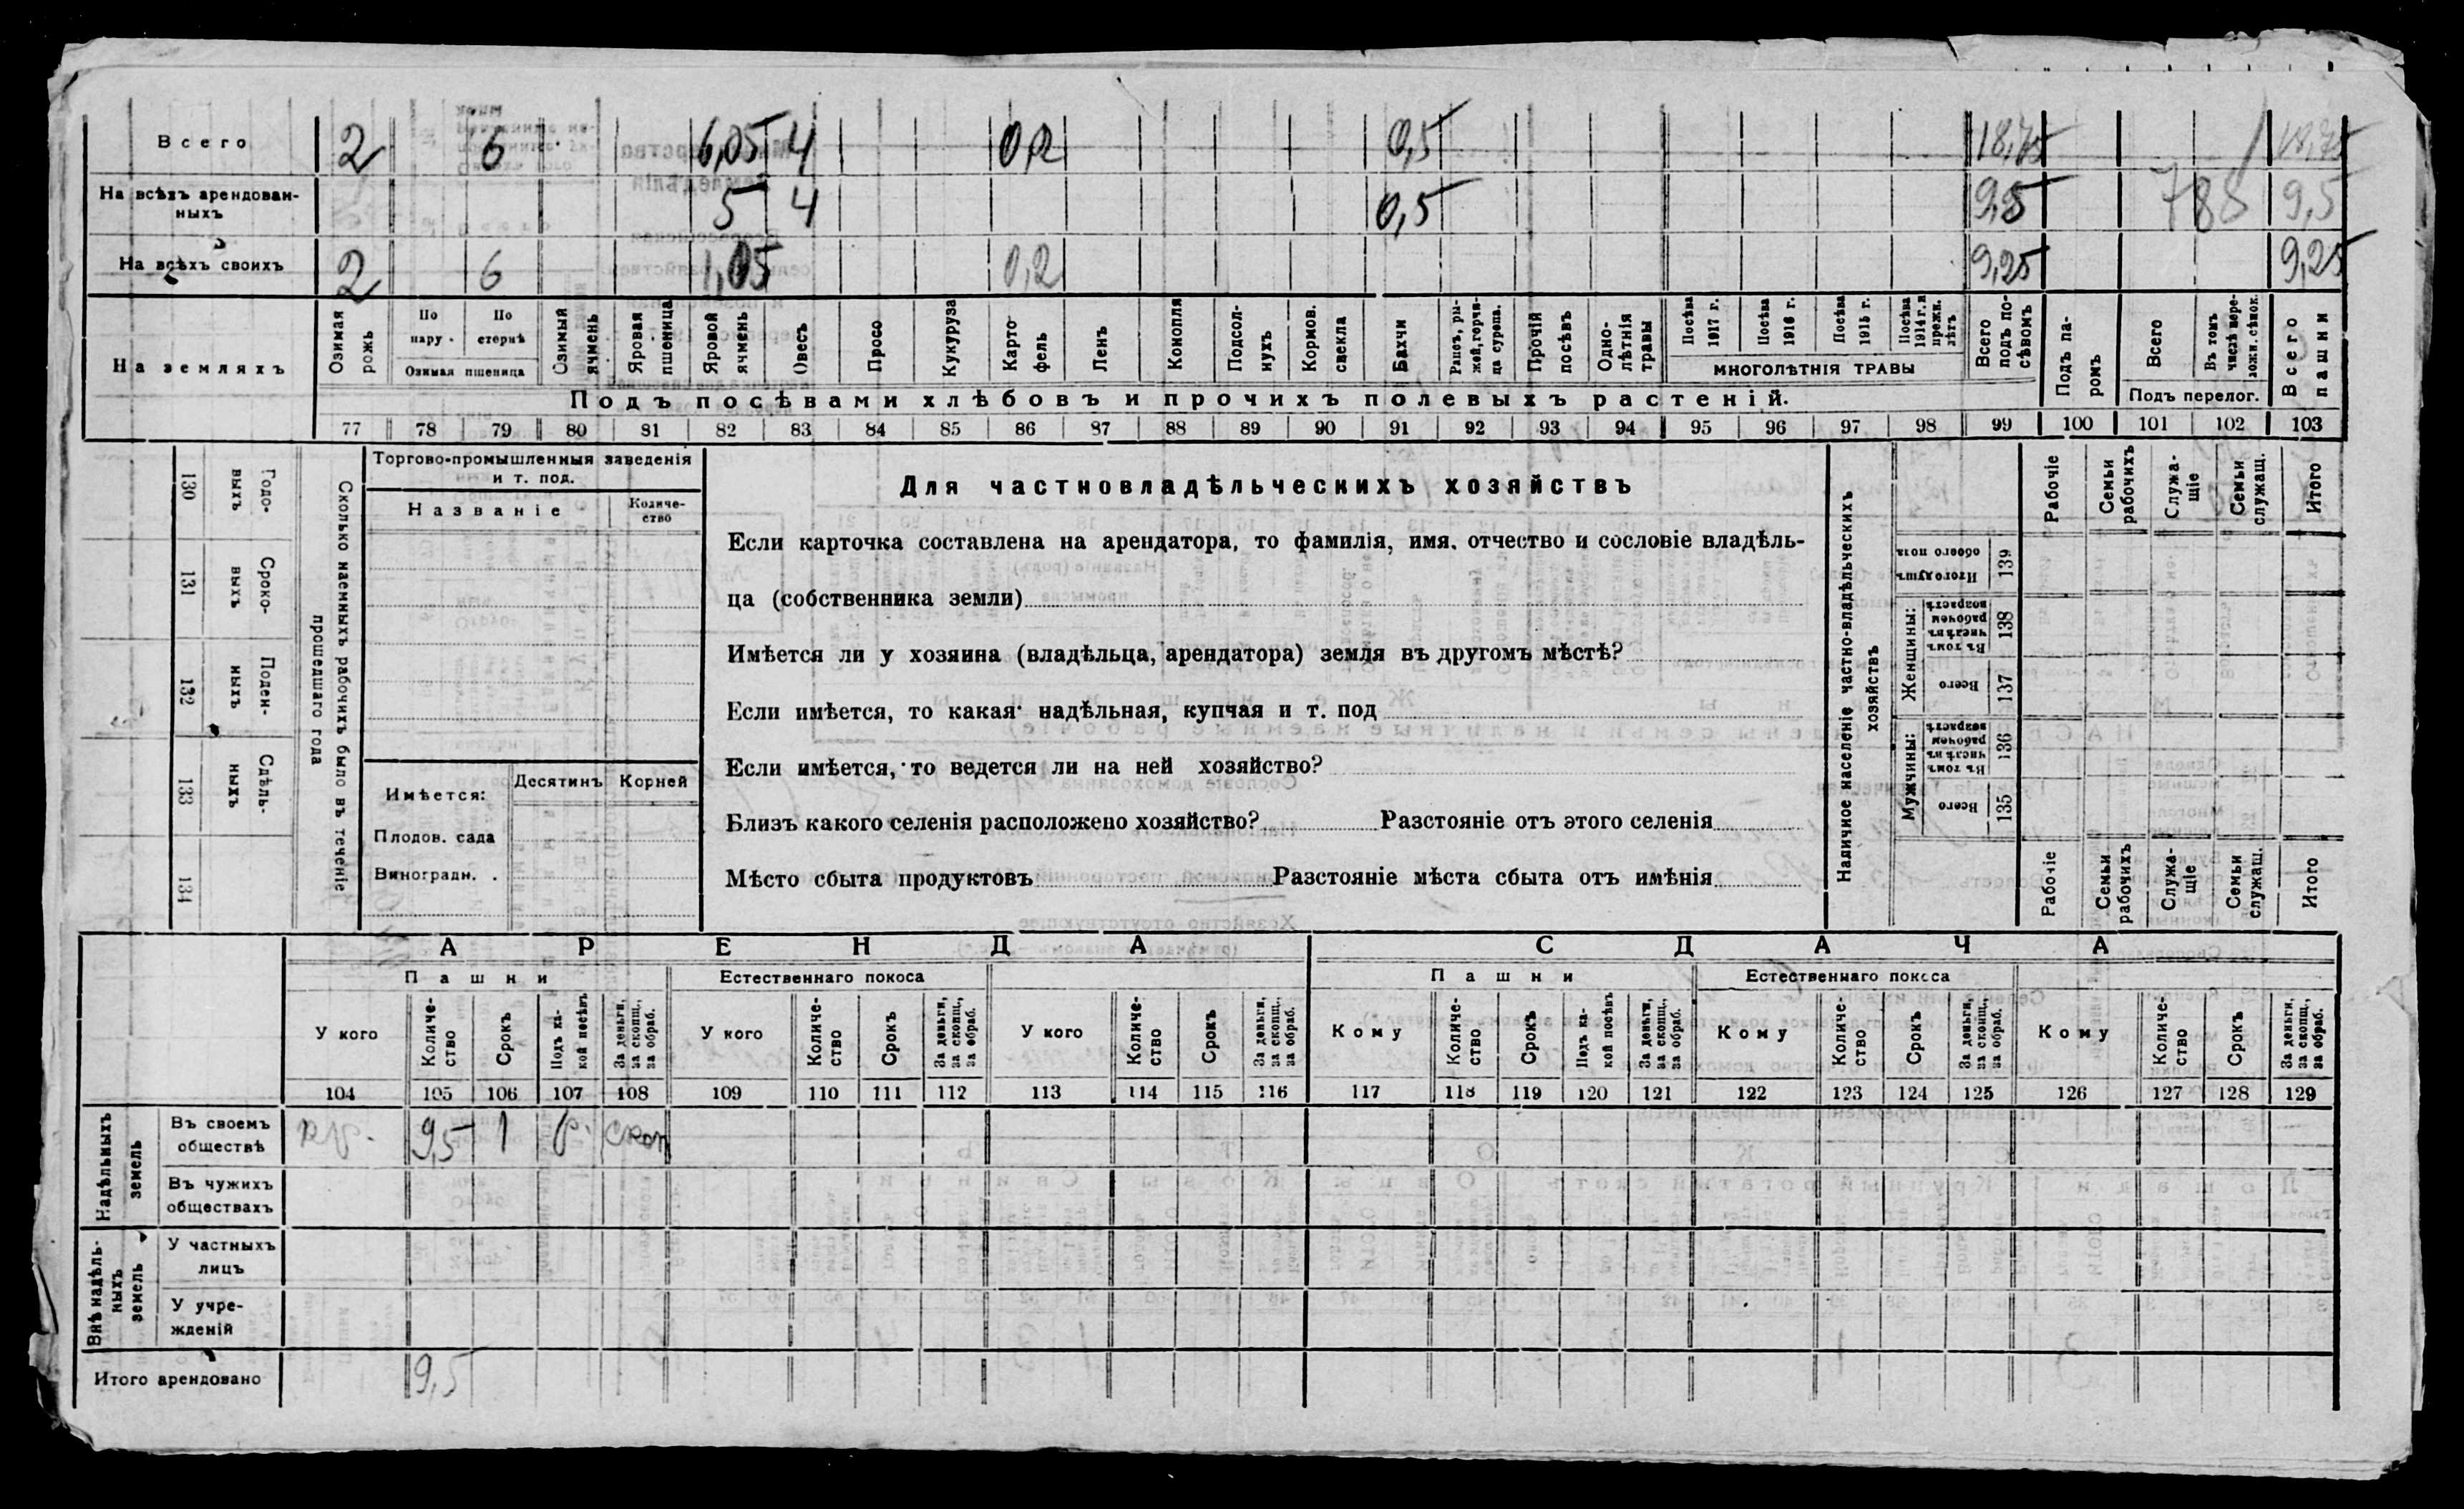 Всего 2 6 6,05 4 0,2 0,5 18,75 18,75
На всѣхъ арендован-
ныхъ 5 4 0,5 9,5 788 9,5
На всѣхъ своихъ 2 6 1,05 0,2 9,25 9,25
На земляхъ
Озимая рожь
По пару
По стернѣ
Озимая пшеница
Озимый ячмень
Яровая пшеница
Яровой ячмень
Овесъ
Просо
Кукуруза
Карто
фель
Ленъ
Конопля
Подсол-
нухъ
Кормов.
свекла
Бахчи
Рапсъ, ры-
жей, горчи-
ца сурепа.
Прочій
посѣвъ
Одно-
лѣтнія
травы
Посѣва
1917 г.
Посѣва
1916 г.
Посѣва
1915 г.
Посѣва
1914 г. и
прежн.
лѣтъ
МНОГОЛѢТНІЯ ТРАВЫ
Всего
подъ по-
сѣвомъ
Подъ па-
ромъ
Всего
Въ томъ
числѣ пере-
ложн. сѣнок.
Подъ перелог.
Всего
пашни
Подъ посѣвами хлѣбовъ и прочихъ полевыхъ растеній.
77 78 79 80 81 82 83 84 85 86 87 88 89 90 91 92 93 94 95 96 97 98 99 100 101 102 103
Сколько наемныхъ рабочихъ было въ теченіе
прошедшаго года
Годо-
выхъ
130
Сроко-
выхъ
131
Поден-
ныхъ
132
Сдѣль-
ныхъ
133
134
Торгово-промышленныя заведенія
и т. под.
Названіе
Количе-
ство
Имѣется:
Десятинъ Корней
Плодов. сада
Виноградн.
Для частновладѣльческихъ хозяйствъ
Если карточка составлена на арендатора, то фамилія, имя, отчество и сословіе владѣль-
ца (собственника земли)
Имѣется ли у хозяина (владѣльца, арендатора) земля въ другомъ мѣстѣ?
Если имѣется, то какая надѣльная, купчая и т. под
Если имѣется, то ведется ли на ней хозяйство?
Близъ какого селенія расположено хозяйство? Разстояніе отъ этого селенія
Мѣсто сбыта продуктовъ Разстояніе мѣста сбыта отъ имѣнія
Наличное населеніе частно-владѣльческихъ
хозяйствъ
Рабочіе
Семьи
рабочихъ
Служа-
щіе
Семьи
служащ.
Итого
Итого душъ
обоего пола
139
Женщины:
Въ томъ
числѣ въ
рабочем
возрастѣ
138
Всего
137
Мужчины:
Въ томъ
числѣ въ
рабочем
возрастѣ
136
Всего
135
Рабочіе
Семьи
рабочихъ
Служа-
щіе
Семьи
служащ.
Итого
АРЕНДА СДАЧА
Пашни Естественнаго покоса Пашни Естественнаго покоса
У кого
Количе-
ство
Срокъ
Подъ ка-
кой посѣвъ
За деньги,
за скопщ.,
за обраб.
У кого
Количе-
ство
Срокъ
За деньги,
за скопщ.,
за обраб.
У кого
Количе-
ство
Срокъ
За деньги,
за скопщ.,
за обраб.
Кому
Количе-
ство
Срокъ
Подъ ка-
кой посѣвъ
За деньги,
за скопщ.,
за обраб.
Кому
Количе-
ство
Срокъ
За деньги,
за скопщ.,
за обраб.
Кому
Количе-
ство
Срокъ
За деньги,
за скопщ.,
за обраб.
104 105 106 107 108 109 110 111 112 113 114 115 116 117 118 119 120 121 122 123 124 125 126 127 128 129
Надѣльныхъ
земель
Въ своемъ
обществѣ кр. 9,5 1 р. скоп
Въ чужихъ
обществахъ
Внѣ надѣль-
ныхъ
земель
У частныхъ
лицъ
У учре-
жденій
Итого арендовано 9,5